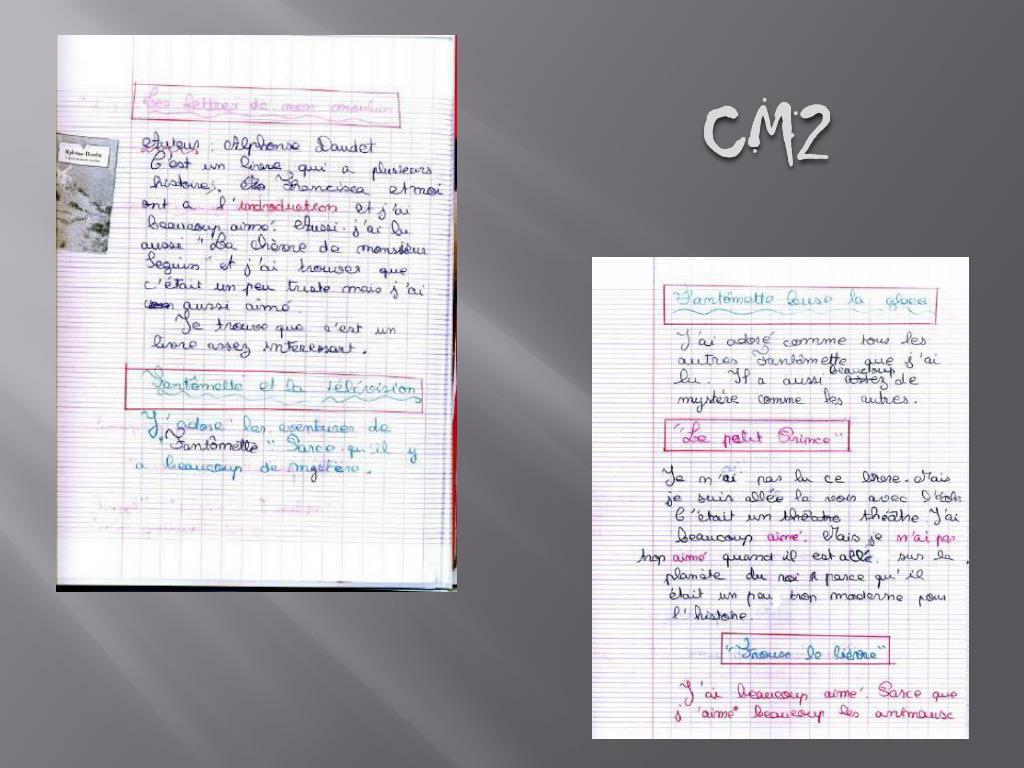 CM2
Les lettres de mon moulin
Auteur : Alphonse Daudet
C'est un livre qui a plusieurs
histoires. Francisca et moi
ont a l'indroduction et j'ai
beaucoup aimé. Aussi j'ai lu
aussi "La chèvre de monsieur
Seguin" et j'ai trouver que
c'était un peu triste mais j'ai
aussi aimé.
Je trouve que c'est un
livre assez interessant.
Fantômette et la télévision
J'adore les aventures de
"Fantômette" Parce qu'il y
a beaucoup de mystère.
Fantômette brise la glace
J'ai adoré comme tous les
autres Fantômette que j'ai
lu. Il a aussi beaucoup de
mystère comme les autres.
"Le petit Prince"
Je n'ai pas lu ce livre. Mais
je suis allée la voir avec l'école
C'était un théâtre. J'ai
beaucoup aimé. Mais je n'ai pas
trop aimé quand il est allé sur la
planète du roi parce qu'il
était un peu trop moderne pour
l'histoire.
"Trouse le lièvre"
J'ai beaucoup aimé Parce que
j'aime beaucoup les animause